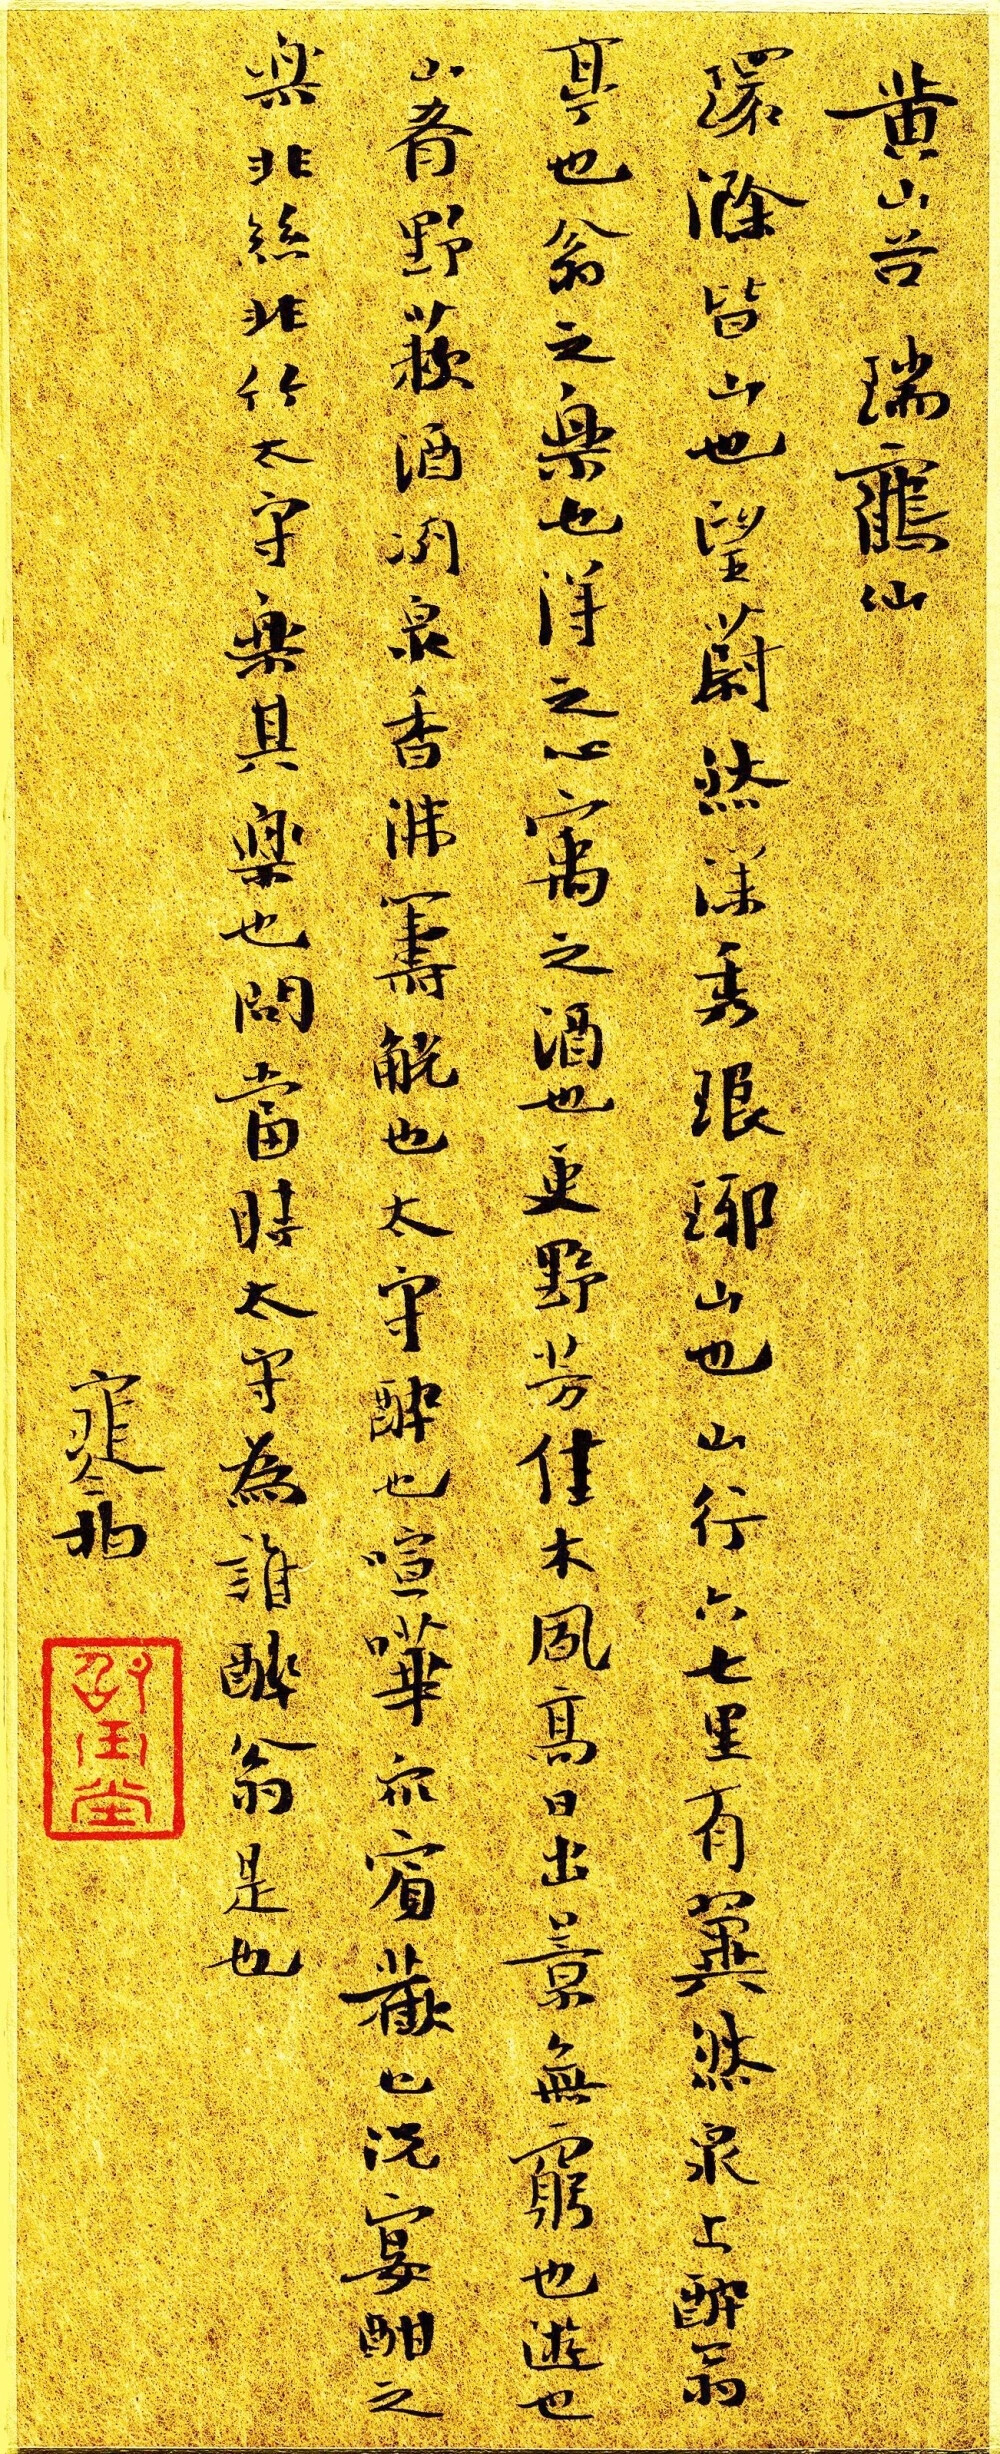 黃山谷 瑞鶴仙
環滁皆山也望蔚然深秀琅琊山也山行六七里有翼然泉上醉翁
亭也翁之樂也得之心寓之酒也更野芳佳木風高日出景無窮也遊也
山肴野蔌酒洌泉香沸籌觥也太守醉也喧嘩眾賓歡也況宴酣之
樂非絲非竹太守樂其樂也問當時太守為誰醉翁是也